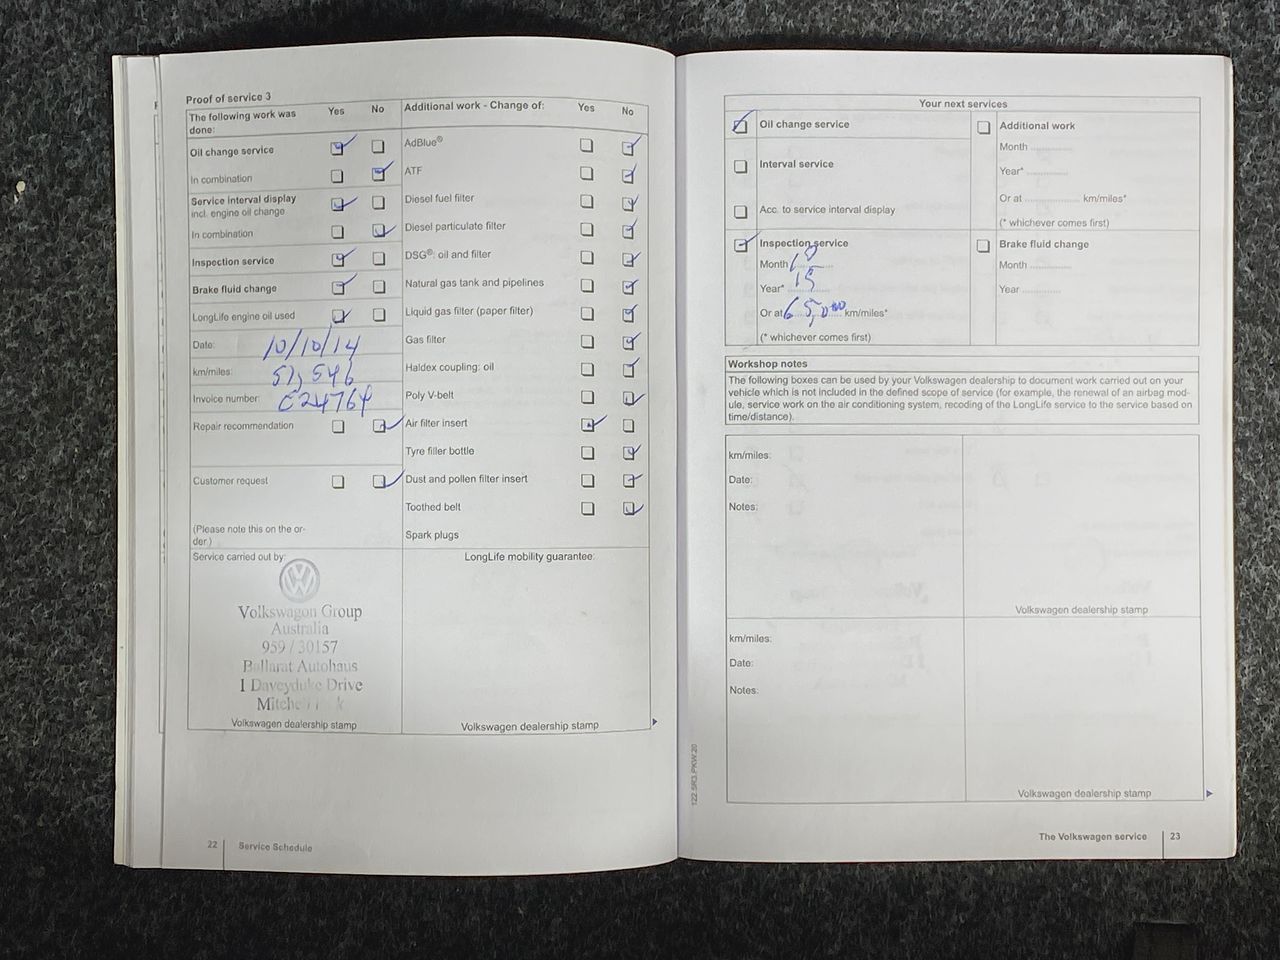 Proof of service 3
The following work was done: Yes No
Oil change service
In combination
Service interval display
incl. engine oil change
In combination
Inspection service
Brake fluid change
LongLife engine oil used
Date: 10/10/14
km/miles: 51,546
Invoice number: C24764
Repair recommendation
Customer request
(Please note this on the or-
der)
Service carried out by:
Volkswagon Group
Australia
959 / 30157
Ballarat Autohaus
1 Daveyduke Drive
Volkswagen dealership stamp
Additional work - Change of: Yes No
AdBlue®
ATF
Diesel fuel filter
Diesel particulate filter
DSG®: oil and filter
Natural gas tank and pipelines
Liquid gas filter (paper filter)
Gas filter
Haldex coupling: oil
Poly V-belt
Air filter insert
Tyre filler bottle
Dust and pollen filter insert
Toothed belt
Spark plugs
LongLife mobility guarantee:
Volkswagen dealership stamp
22 Service Schedule
Your next services
Oil change service
Interval service
Acc. to service interval display
Inspection service
Month 10
Year* 15
Or at 65,000 km/miles*
(* whichever comes first)
Additional work
Month ..............
Year* .............
Or at .................. km/miles*
(* whichever comes first)
Brake fluid change
Month .............
Year .............
Workshop notes
The following boxes can be used by your Volkswagen dealership to document work carried out on your
vehicle which is not included in the defined scope of service (for example, the renewal of an airbag mod-
ule, service work on the air conditioning system, recoding of the LongLife service to the service based on
time/distance).
km/miles:
Date:
Notes:
Volkswagen dealership stamp
km/miles:
Date:
Notes:
Volkswagen dealership stamp
122.5R3.PKW.20
The Volkswagen service 23